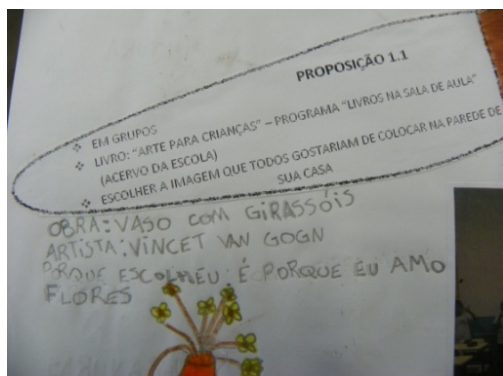 PROPOSIÇÃO 1.1
❖ EM GRUPOS
❖ LIVRO: "ARTE PARA CRIANÇAS" – PROGRAMA "LIVROS NA SALA DE AULA"
(ACERVO DA ESCOLA)
❖ ESCOLHER A IMAGEM QUE TODOS GOSTARIAM DE COLOCAR NA PAREDE DE
SUA CASA
OBRA: VASO COM GIRASSÓIS
ARTISTA: VINCET VAN GOGN
PORQUE ESCOLHEU: É PORQUE EU AMO
FLORES